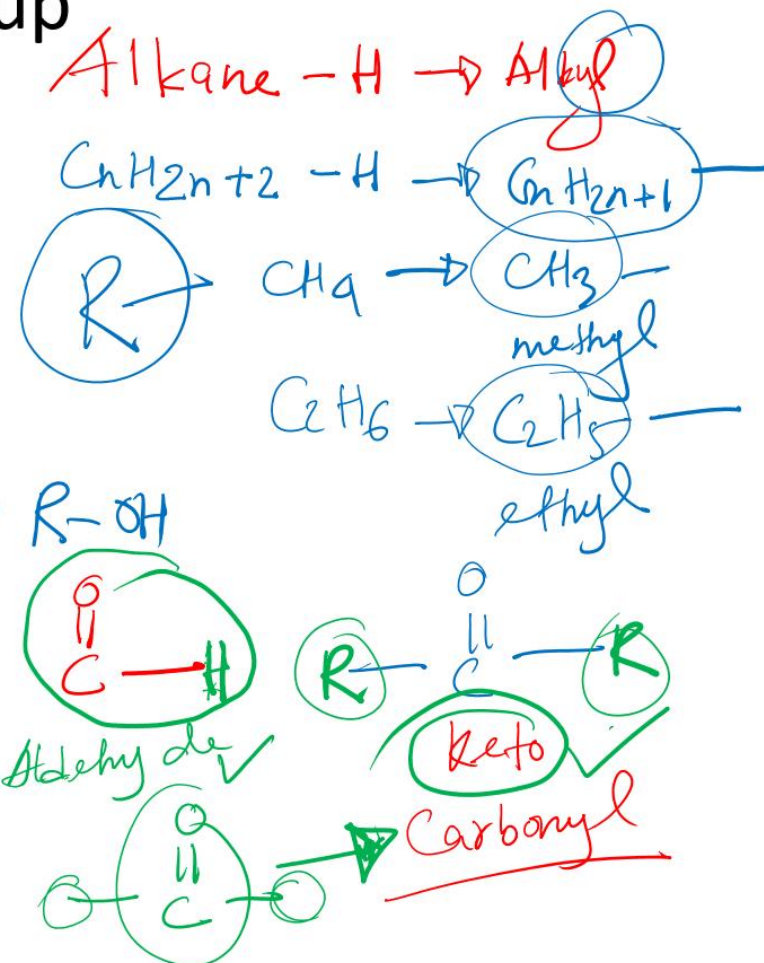 up
Alkane - H → Alkyl
CnH2n+2 - H → CnH2n+1 —
R → CH4 → CH3 —
methyl
C2H6 → C2H5 —
ethyl
R-OH
O O
|| ||
C — H R — C — R
Aldehyde ✓ Keto ✓
O
|| → Carbonyl
— C —